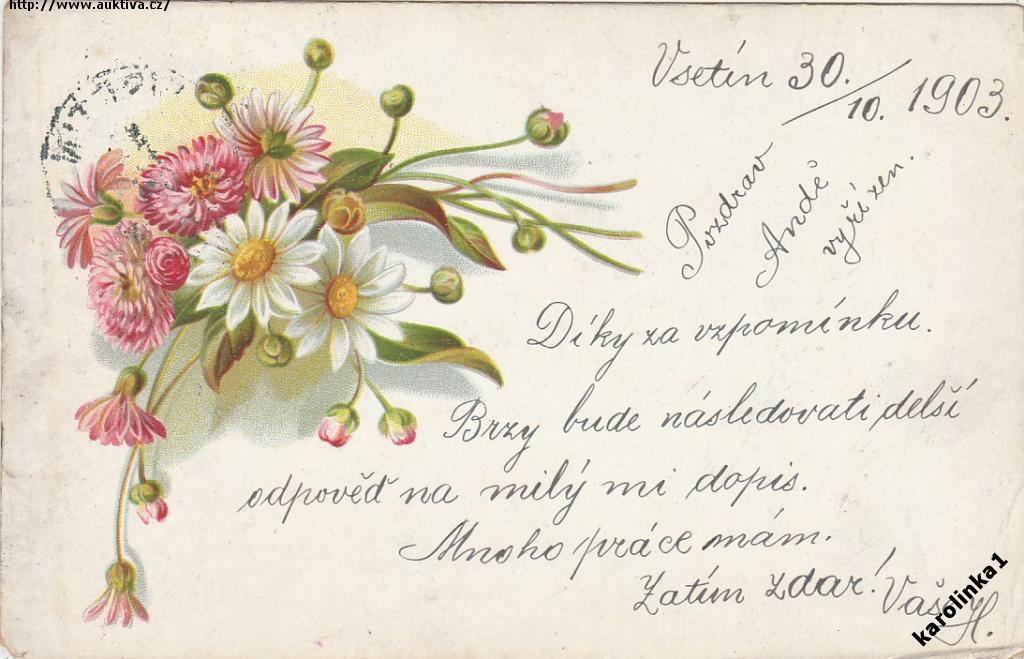 http://www.auktiva.cz/
Vsetín 30./10. 1903.
Pozdrav
Andě
vyřízen.
Díky za vzpomínku.
Brzy bude následovati delší
odpověď na milý mi dopis.
Mnoho práce mám.
Zatím zdar! Váš H.
karolinka1